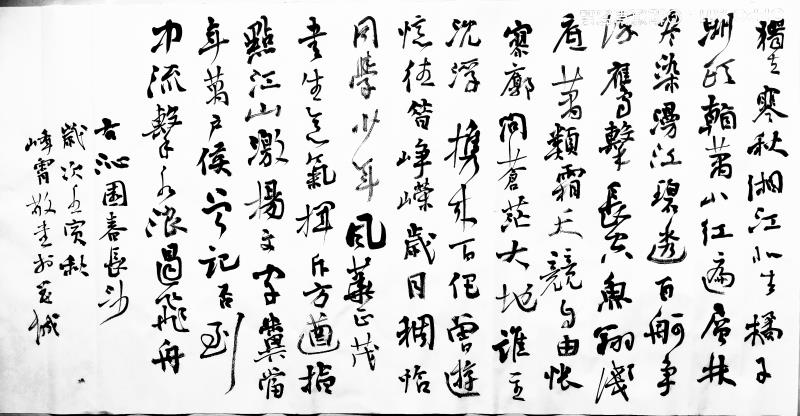 獨立寒秋湘江北去橘子
洲頭看萬山紅遍層林
盡染漫江碧透百舸爭
流鷹擊長空魚翔淺
底萬類霜天競自由悵
寥廓問蒼茫大地誰主
沉浮攜來百侶曾遊
憶往昔崢嶸歲月稠恰
同學少年風華正茂
書生意氣揮斥方遒指
點江山激揚文字糞當
年萬戶侯曾記否到
中流擊水浪遏飛舟
右沁園春長沙
歲次壬寅秋
峰霄敬書於